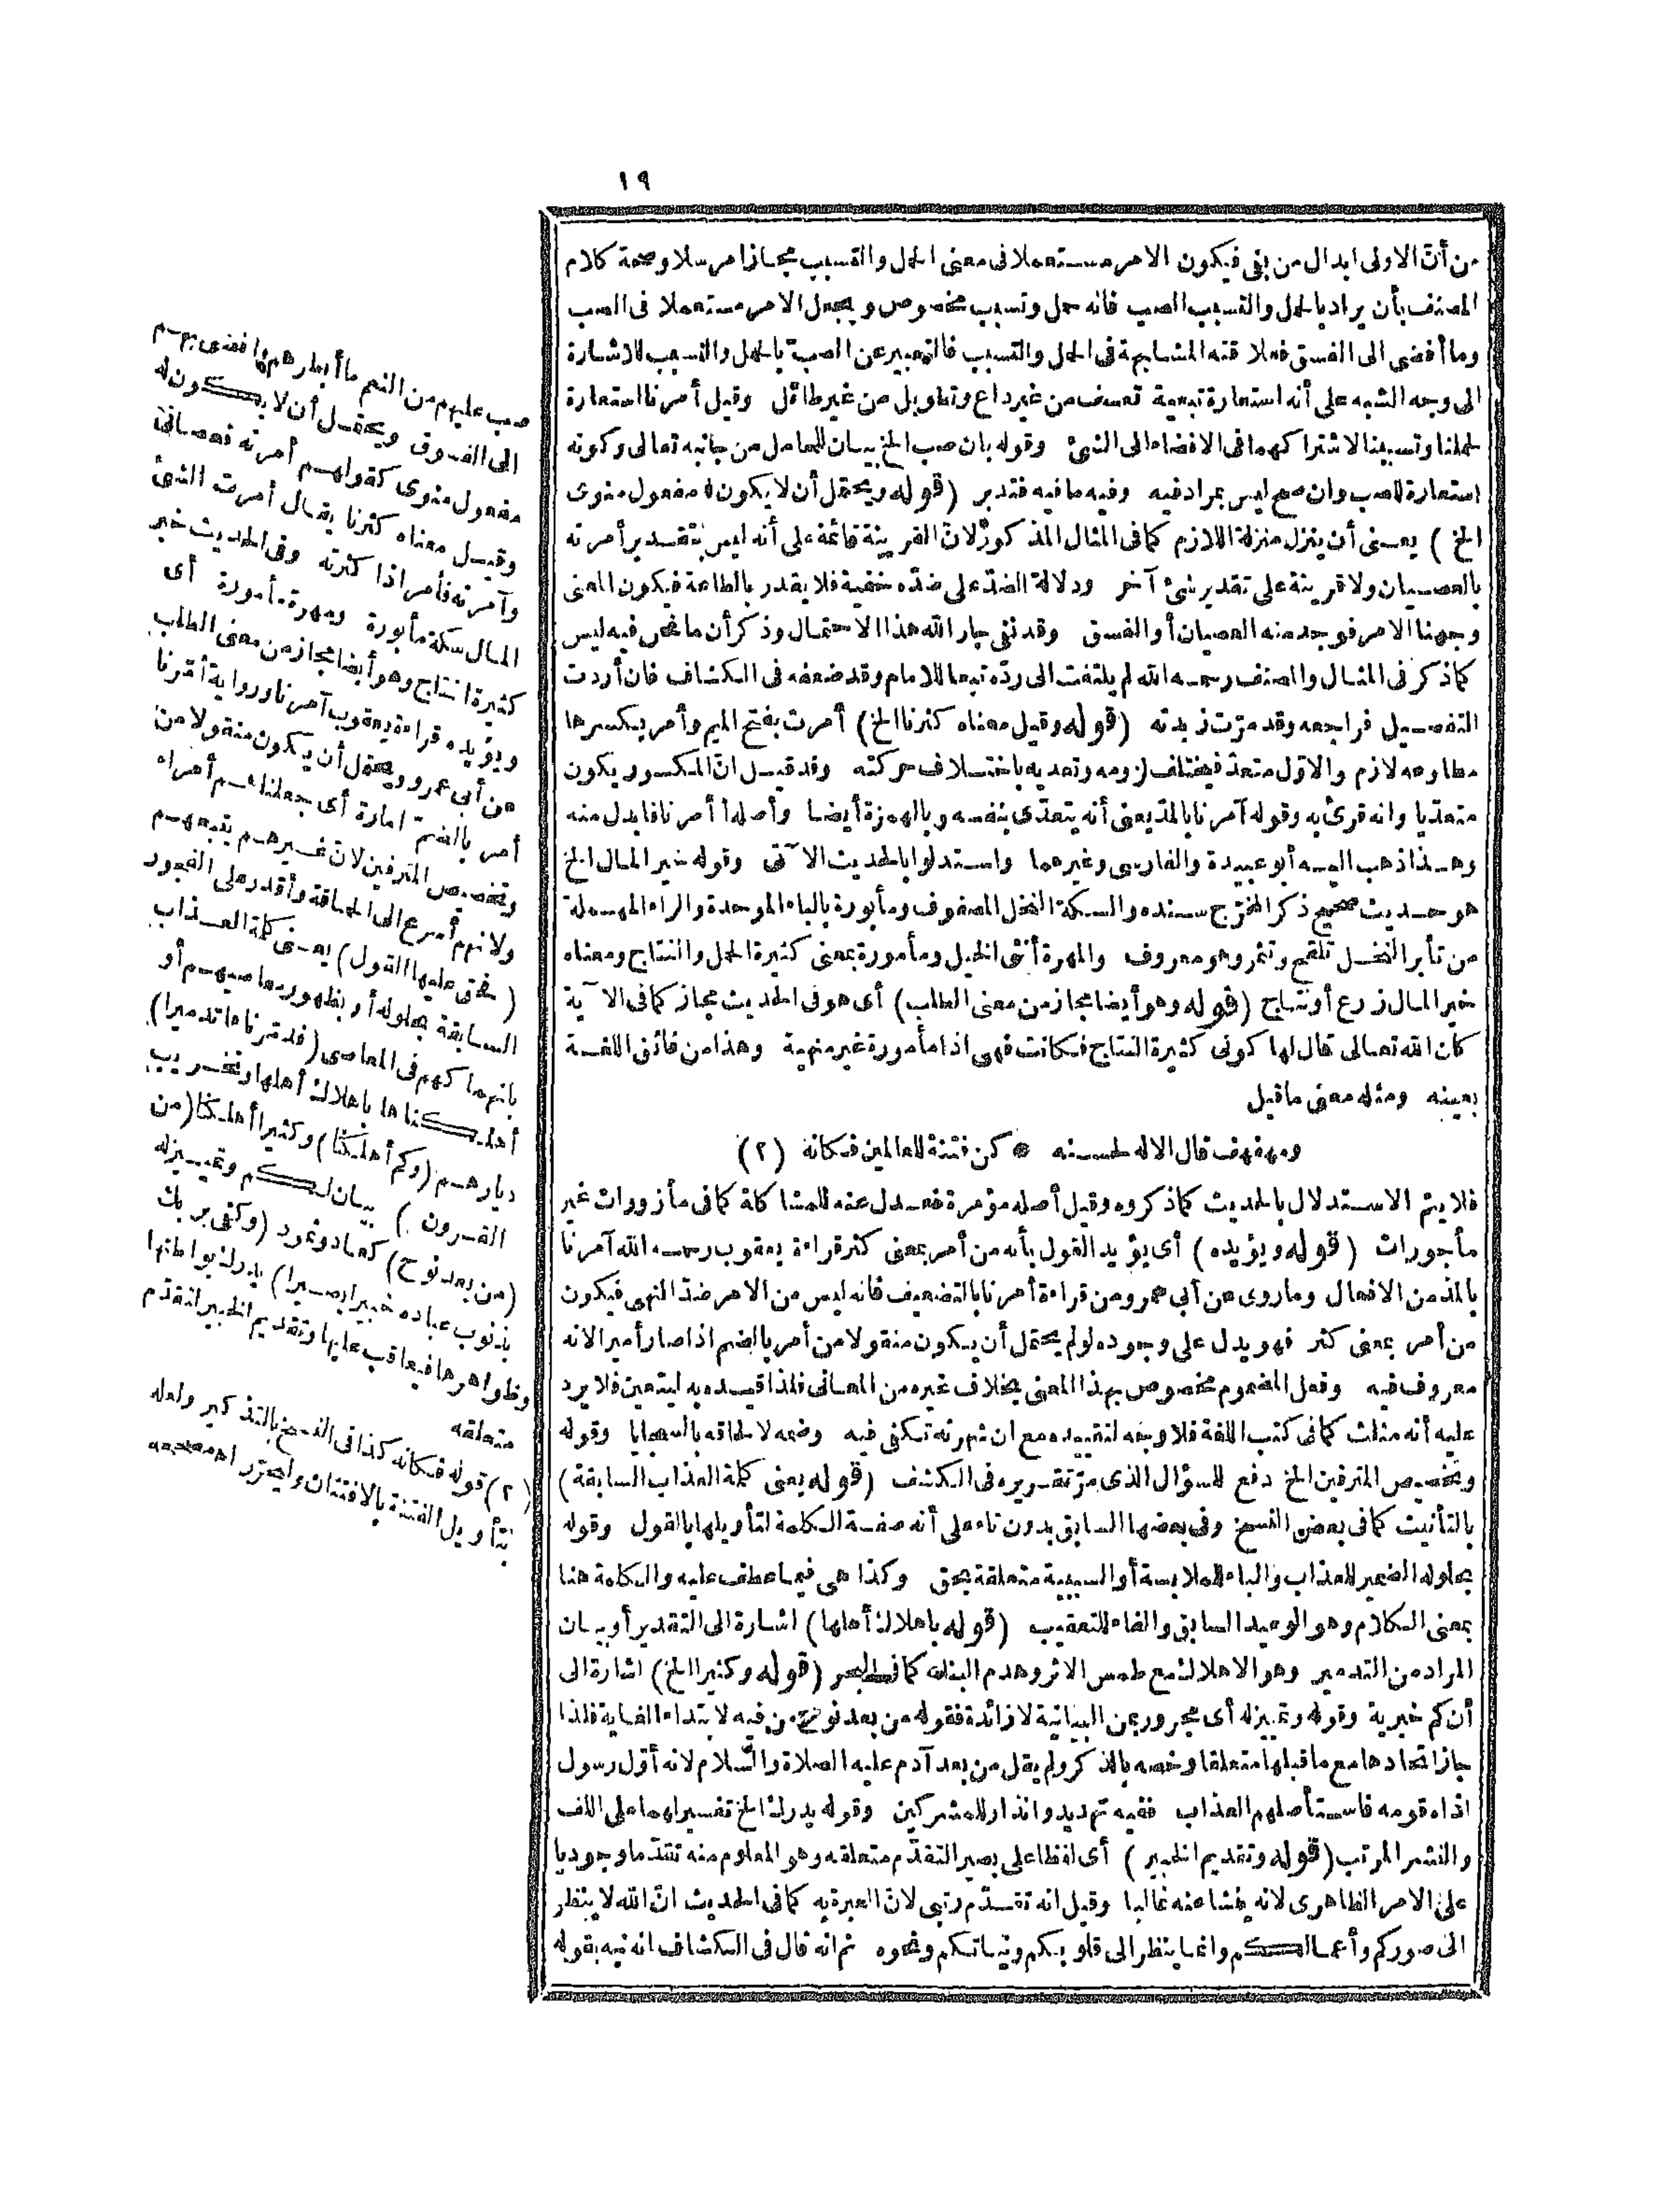 ١٩
من أنّ الاولى ابدال من بفي فيكون الامر مستعملا فى معنى الحمل والتسبب مجازا مرسلا وصحة كلام
المصنف بأن يراد بالحمل والتسبب الصب فانه حمل وتسبب مخصوص ويجعل الامر مستعملا فى الصب
وما أفضى الى الفسق فعلاقته المشابهة فى الحمل والتسبب فالتعبير عن الصبّ بالحمل والتسبب للاشارة
الى وجه الشبه على أنه استعارة تبعية تعسف من غير داع وتطويل من غير طائل وقيل أمرنا استعارة
لحملنا وتسببنا لاشتراكهما فى الافضاء الى الشئ وقوله بان صب الخ بيان للحامل من جانبه تعالى وكونه
استعارة للصب وان صح ليس بمراد فيه وفيه ما فيه فتدبر (قوله ويحتمل أن لا يكون له مفعول منوى
الخ) يعنى أن ينزل منزلة اللازم كما فى المثال المذكور لانّ القرينة قائمة على أنه ليس بتقدير أمرته
بالعصيان ولا قرينة على تقدير شئ آخر ودلالة الضدّ على ضدّه خفية فلا يقدر بالطاعة فيكون المعنى
وجهنا الامر فوجد منه العصيان أو الفسق وقد نفى جار الله هذا الاحتمال وذكر أن ما نحن فيه ليس
كما ذكر فى المثال والمصنف رحمه الله لم يلتفت الى ردّه تبعا للامام وقد ضعفه فى الكشاف فان أردت
التفصيل فراجعه وقد مرّت زبدته (قوله وقيل معناه كثرنا الخ) أمرت بفتح الميم وأمر بكسرها
مطاوعه لازم والاوّل متعدّ فيختلف لزومه وتعديه باختلاف حركته وقد قيل انّ المكسور يكون
متعدّيا وانه قرئ به وقوله آمرنا بالمدّ يعنى أنه يتعدّى بنفسه وبالهمزة أيضا وأصله أأمرنا فابدل منه
وهذا ذهب اليه أبو عبيدة والفارسى وغيرهما واستدلوا بالحديث الآتى وقوله خير المال الخ
هو حديث صحيح ذكر المخرّج سنده والسكة النخل المصفوف ومأبورة بالباء الموحدة والراء المهملة
من تأبير النخل تلقح وتثمر وهو معروف والمهرة أنثى الخيل ومأمورة بمعنى كثيرة الحمل والنتاج ومعناه
خير المال زرع أو نتاج (قوله وهو أيضا مجاز من معنى الطلب) أى هو فى الحديث مجاز كما فى الآية
كان الله تعالى قال لها كونى كثيرة النتاج فكانت فهى اذا مأمورة غير منهية وهذا من فائق اللغة
بعينه ومثله معنى ما قيل
ومهفهف قال الاله لحسنه * كن فتنة للعالمين فكانه (٢)
فلا يتم الاستدلال بالحديث كما ذكروه وقيل أصله مؤمرة فعدل عنه للمشاكلة كما فى مأزورات غير
مأجورات (قوله ويؤيده) أى يؤيد القول بأنه من أمر بمعنى كثر قراءة يعقوب رحمه الله آمرنا
بالمدّ من الافعال وما روى عن أبى عمرو من قراءة أمّرنا بالتضعيف فانه ليس من الامر ضدّ النهى فيكون
من أمر بمعنى كثر فهو يدل على وجوده لو لم يحتمل أن يكون منقولا من أمر بالضم اذا صار أميرا لانه
معروف فيه وفعل المضموم مخصوص بهذا المعنى بخلاف غيره من المعانى فلذا قيده به ليتعين فلا يرد
عليه أنه مثلث كما فى كتب اللغة فلا وجه لتقييده مع ان شهرته تكفى فيه وضمه لالحاقه بالسجايا وقوله
وتخصيص المترفين الخ دفع للسؤال الذى مرّ تقريره فى الكشف (قوله يعنى كلمة العذاب السابقة)
بالتأنيث كما فى بعض النسخ وفى بعضها السابق بدون تاء على أنه صفة الكلمة لتأويلها بالقول وقوله
بحلوله الضمير للعذاب والباء للملابسة أو السببية متعلقة بحق وكذا هى فيما عطف عليه والكلمة هنا
بمعنى الكلام وهو الوعيد السابق والفاء للتعقيب (قوله باهلاك أهلها) اشارة الى التقدير أو بيان
المراد من التدمير وهو الاهلاك مع طمس الاثر وهدم البناء كما فى البحر (قوله وكثيرا الخ) اشارة الى
أن كم خبرية وقوله وتمييزله أى مجرور بمن البيانية لا زائدة فقوله من بعد نوح من فيه لابتداء الغاية فلذا
جاز اتحادها مع ما قبلها متعلقا وخصه بالذكر ولم يقل من بعد آدم عليه الصلاة والسّلام لانه أوّل رسول
اذاه قومه فاستأصلهم العذاب ففيه تهديد وانذار للمشركين وقوله يدرك الخ تفسير لهما على اللف
والنشر المرتب (قوله وتقديم الخبير) أى لفظا على بصير التقدّم متعلقه وهو المعلوم منه تقدّما وجوديا
على الامر الظاهرى لانه ينشا عنه غالبا وقيل انه تقدّم رتبى لانّ العبرة به كما فى الحديث انّ الله لا ينظر
الى صوركم وأعمالكم وانما ينظر الى قلوبكم ونياتكم ونحوه ثم انه قال فى الكشاف انه نبه بقوله
صب عليهم من النعم ما أبطرهم وأفضى بهم
الى الفسوق ويحتمل أن لا يكون له
مفعول منوى كقولهم أمرته فعصانى
وقيل معناه كثرنا يقال أمرت الشئ
وآمرته فأمر اذا كثرته وفى الحديث خير
المال سكة مأبورة ومهرة مأمورة أى
كثيرة انتاج وهو أيضا مجاز من معنى الطلب
ويؤيده قراءة يعقوب آمرنا ورواية أمّرنا
عن أبى عمرو ويحتمل أن يكون منقولا من
أمر بالضمّ امارة أى جعلناهم أمراء
وتخصيص المترفين لانّ غيرهم يتبعهم
ولانهم أسرع الى الحماقة وأقدر على الفجور
(فحق عليها القول) يعنى كلمة العذاب
السابقة بحلوله أو بظهور معاصيهم أو
بانهماكهم فى المعاصى (فدمّرناها تدميرا)
أهلكناها باهلاك أهلها وتخريب
ديارهم (وكم أهلكنا) وكثيرا أهلكنا (من
القرون) بيان لكم وتمييزله
(من بعد نوح) كعاد وثمود (وكفى بربك
بذنوب عباده خبيرا بصيرا) يدرك بواطنها
وظواهرها فيعاقب عليها وتقديم الخبير لتقدّم
متعلقه
(٢) قوله فكانه كذا فى النسخ بالتذكير ولعله
بتأويل الفتنة بالافتتان وليحرّر اه مصححه